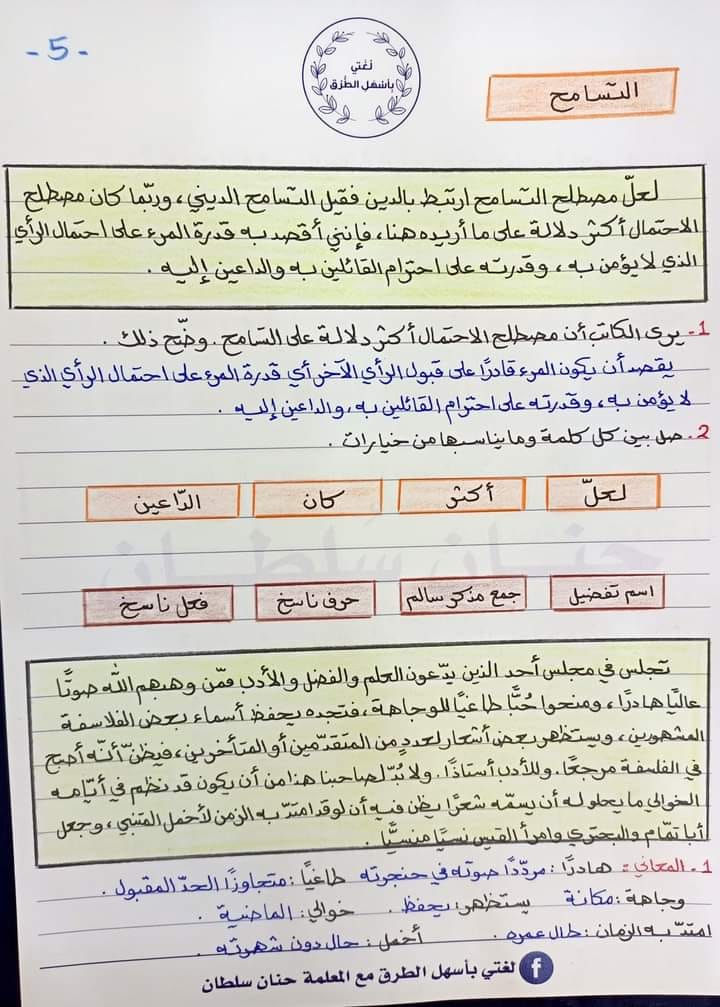 - 5 -
لغتي
بأسهل الطرق
التسامح
لعلّ مصطلح التسامح ارتبط بالدين فقيل التسامح الديني، وربّما كان مصطلح
الاحتمال أكثر دلالة على ما أريده هنا، فإنني أقصد به قدرة المرء على احتمال الرأي
الذي لا يؤمن به، وقدرته على احترام القائلين به والداعين إليه.
1- يرى الكاتب أن مصطلح الاحتمال أكثر دلالة على التسامح. وضّح ذلك.
يقصد أن يكون المرء قادرًا على قبول الرأي الآخر أي قدرة المرء على احتمال الرأي الذي
لا يؤمن به، وقدرته على احترام القائلين به، والداعين إليه.
2. صل بين كل كلمة وما يناسبها من خيارات.
لعلّ أكثر كان الدّاعين
حنان سلطان
اسم تفضيل جمع مذكر سالم حرف ناسخ فعل ناسخ
تجلس في مجلس أحد الذين يدّعون العلم والفضل والأدب فمّن وهبهم الله صوتًا
عاليًا هادرًا، ومنحوا حُبًّا طاغيًا للوجاهة، فتجده يحفظ أسماء بعض الفلاسفة
المشهورين، ويستظهر بعض أشعار لعددٍ من المتقدّمين أو المتأخرين، فيظنّ أنّه أصبح
في الفلسفة مرجعًا. وللأدب أستاذًا. ولا بُدّ لصاحبنا هذا من أن يكون قد نظم في أيّامه
الخوالي ما يحلو له أن يسمّه شعرًا يظن فيه أن لو قد امتدّ به الزمن لأخمل المتنبي، وجعل
أبا تمّام والبحتري وامرأ القيس نسيًا منسيًّا.
1- المعاني: هادرًا: مردّدًا صوته في حنجرته طاغيًا: متجاوزًا الحدّ المقبول.
وجاهة: مكانة يستظهر: يحفظ. خوالي: الماضية.
امتدّ به الزمان: طال عمره. أخمل: حال دون شهرته.
لغتي بأسهل الطرق مع المعلمة حنان سلطان